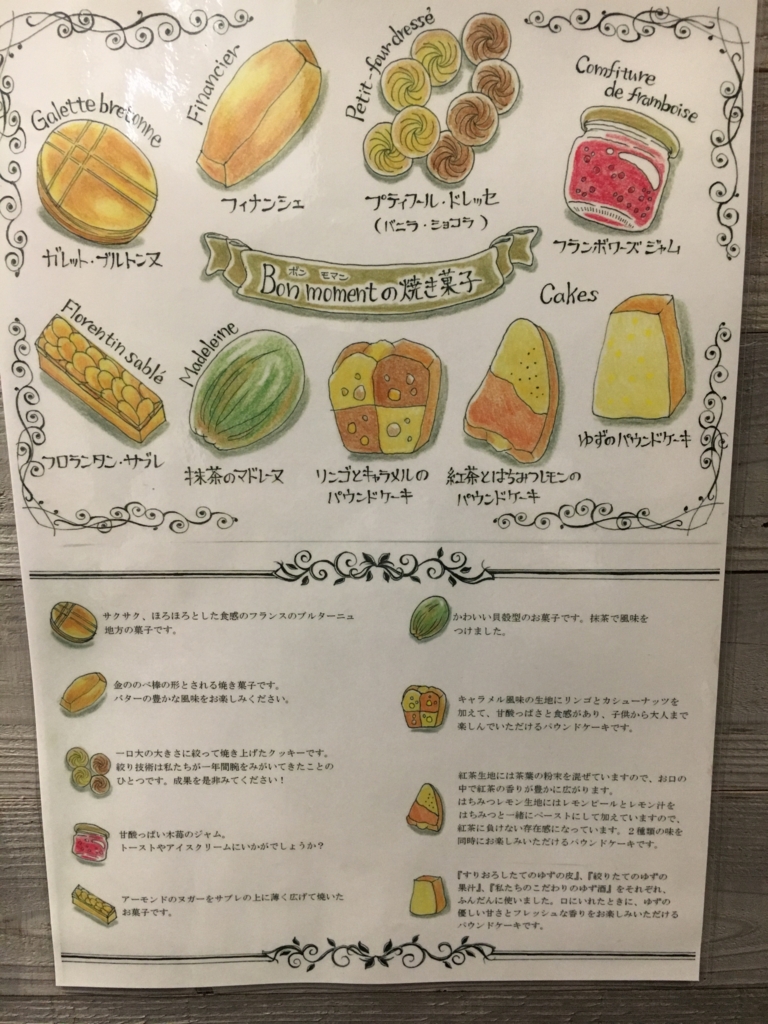 Galette bretonne
ガレット・ブルトンヌ
Financier
フィナンシェ
Petit-four dressé
プティフール・ドレッセ
(バニラ・ショコラ)
Comfiture
de framboise
フランボワーズジャム
ボン モマン
Bon momentの焼き菓子
Florentin sablé
フロランタン・サブレ
Madeleine
抹茶のマドレーヌ
Cakes
リンゴとキャラメルの
パウンドケーキ
紅茶とはちみつレモンの
パウンドケーキ
ゆずのパウンドケーキ
サクサク、ほろほろとした食感のフランスのブルターニュ
地方の菓子です。
金ののべ棒の形とされる焼き菓子です。
バターの豊かな風味をお楽しみください。
一口大の大きさに絞って焼き上げたクッキーです。
絞り技術は私たちが一年間腕をみがいてきたことの
ひとつです。成果を是非みてください!
甘酸っぱい木苺のジャム。
トーストやアイスクリームにいかがでしょうか?
アーモンドのヌガーをサブレの上に薄く広げて焼いた
お菓子です。
かわいい貝殻型のお菓子です。抹茶で風味を
つけました。
キャラメル風味の生地にリンゴとカシューナッツを
加えて、甘酸っぱさと食感があり、子供から大人まで
楽しんでいただけるパウンドケーキです。
紅茶生地には茶葉の粉末を混ぜていますので、お口の
中で紅茶の香りが豊かに広がります。
はちみつレモン生地にはレモンピールとレモン汁を
はちみつと一緒にペーストにして加えていますので、
紅茶に負けない存在感になっています。2種類の味を
同時にお楽しみいただけるパウンドケーキです。
『すりおろしたてのゆずの皮』、『絞りたてのゆずの
果汁』、『私たちのこだわりのゆず酒』をそれぞれ、
ふんだんに使いました。口にいれたときに、ゆずの
優しい甘さとフレッシュな香りをお楽しみいただける
パウンドケーキです。